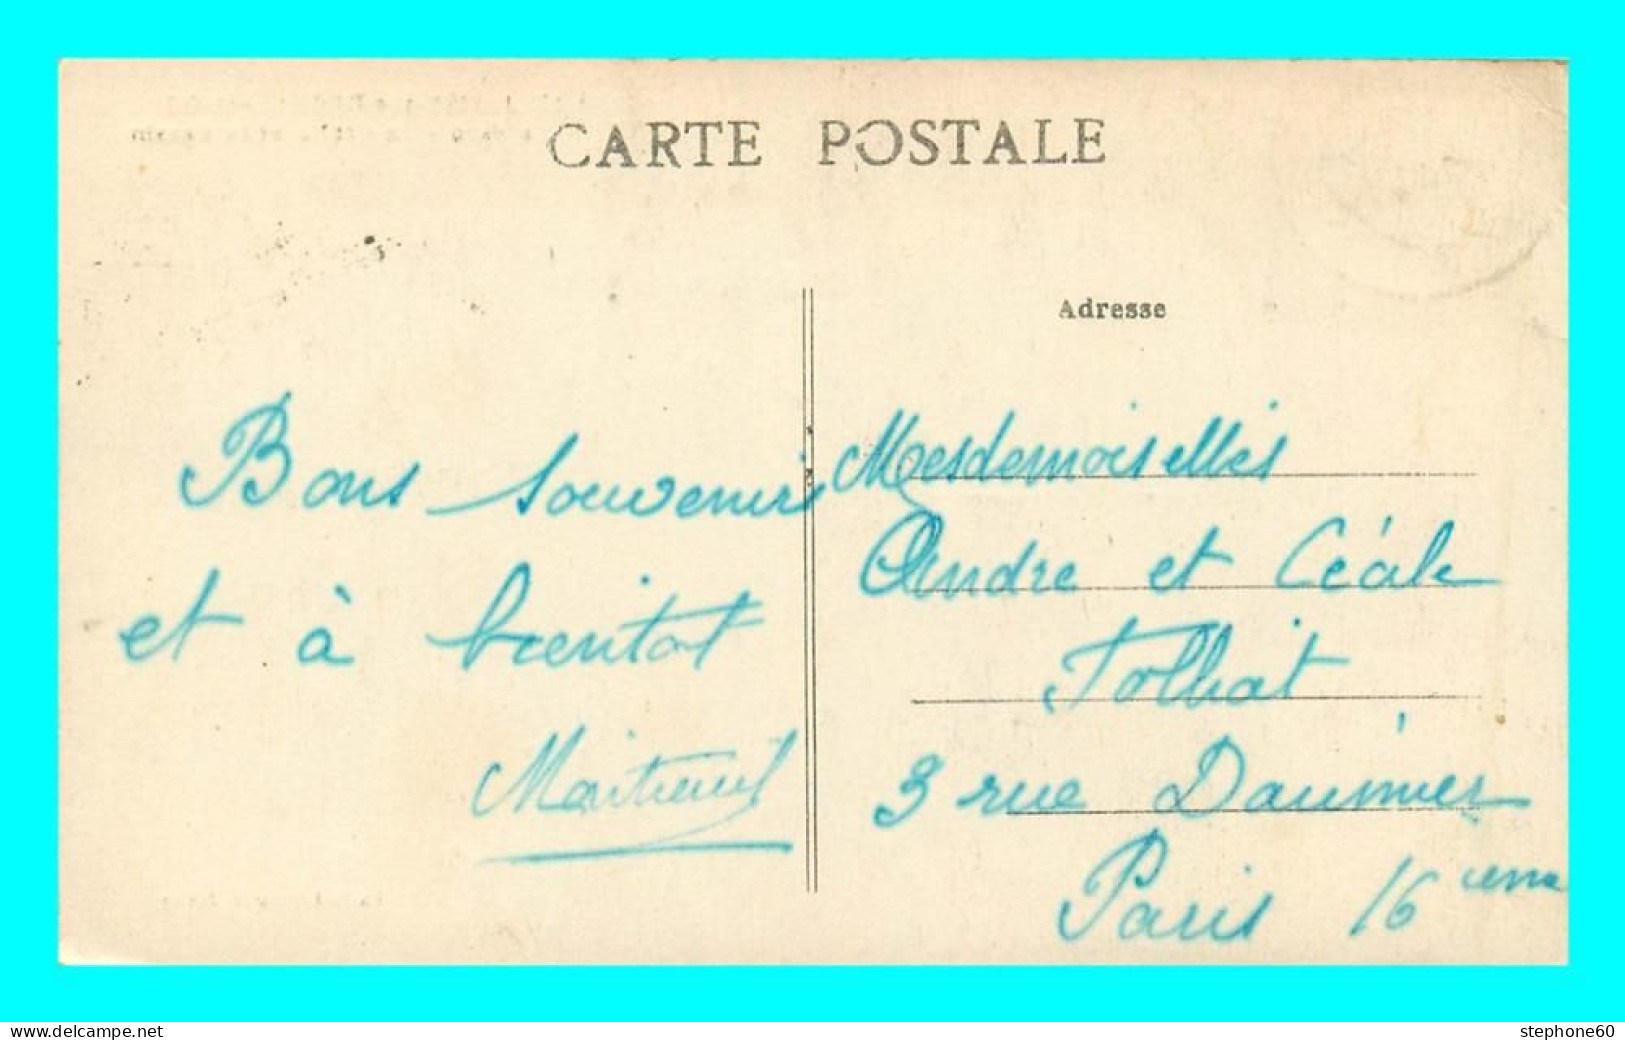 CARTE POSTALE
Adresse
Bons souvenirs
et à bientot
Montreuil
Mesdemoiselles
Andre et Cécile
Tolhat
3 rue Daumier
Paris 16 ieme
www.delcampe.net
stephone60